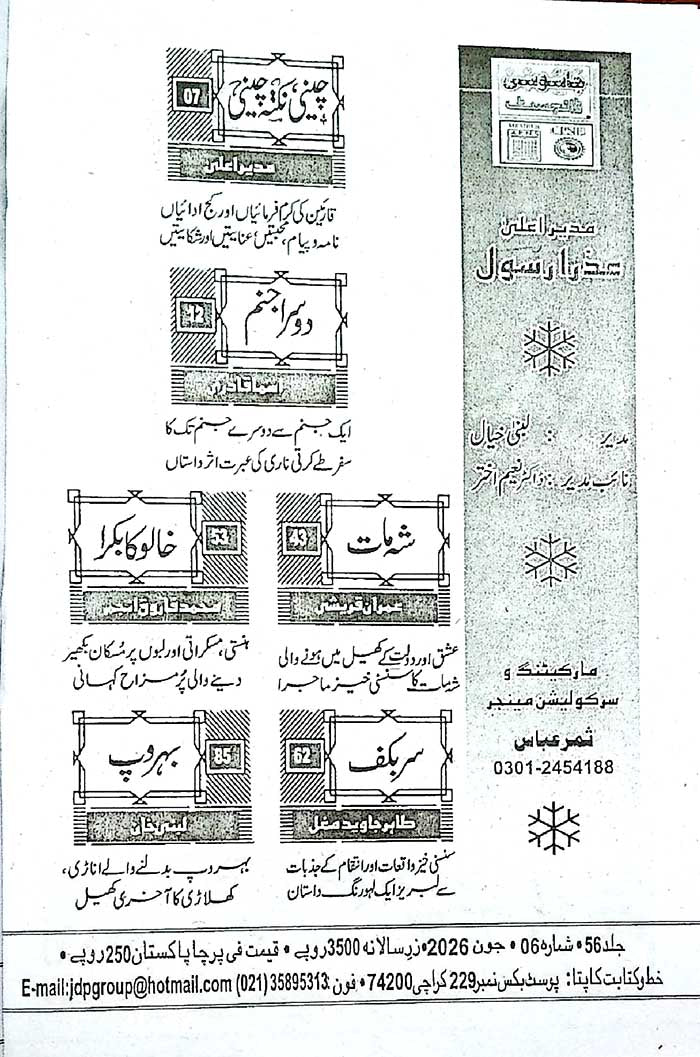 جاسوسی
ڈائجسٹ
MEMBER
APNS
CPNE
مدیراعلیٰ
عذرا رسول
مدیر : لبنیٰ خیال
نائب مدیر : ڈاکٹر نعیم اختر
مارکیٹنگ و
سرکولیشن مینجر
ثمر عباس
0301-2454188
چینی، نکتہ چینی
07
مدیراعلیٰ
قارئین کی کرم فرمائیاں اور کج ادائیاں
نامہ و پیام، محبتیں، عنایتیں اور شکایتیں
دوسرا جنم
12
اسما قادری
ایک جنم سے دوسرے جنم تک کا
سفر طے کرتی ناری کی عبرت اثر داستاں
شہ مات
43
عمران قریشی
عشق اور دولت کے کھیل میں ہونے والی
شہ مات کا سنسنی خیز ماجرا
خالو کا بکرا
53
محمد فاروق انجم
ہنستی، مسکراتی اور لبوں پر مُسکان بکھیر
دینے والی پُر مزاح کہانی
سربکف
62
طاہر جاوید مغل
سنسنی خیز واقعات اور انتقام کے جذبات
سے لبریز ایک لہو رنگ داستان
بہروپ
85
لبنیٰ خان
بہروپ بدلنے والے اناڑی،
کھلاڑی کا آخری کھیل
جلد 56 • شمارہ 06 • جون 2026 • زرِ سالانہ 3500 روپے • قیمت فی پرچا پاکستان 250 روپے •
خط و کتابت کا پتا: پوسٹ بکس نمبر 229 کراچی 74200 • فون: 35895313 (021) E-mail:jdpgroup@hotmail.com